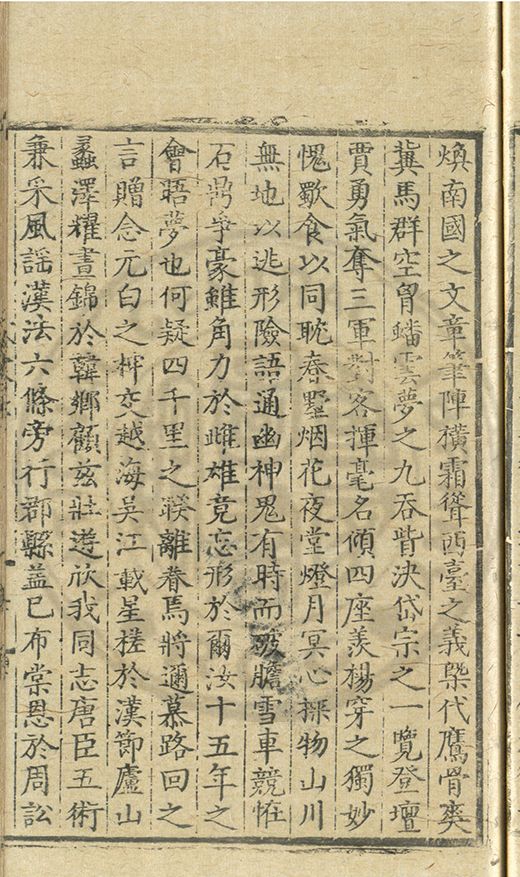 煥南國之文章筆陣橫霜聳西臺之義槩代鷹骨爽
冀馬群空胷蟠雲夢之九吞眥決岱宗之一覽登壇
賈勇氣奪三軍對客揮毫名傾四座羡楊穿之獨妙
愧歜食以同眈春墅烟花夜堂燈月冥心探物山川
無地以逃形險語通幽神鬼有時而破膽雪車競恠
石鼎爭豪雖角力於雌雄竟忘形於爾汝十五年之
會晤夢也何疑四千里之睽離眷焉將邇慕路回之
言贈念元白之神交越海吳江載星槎於漢節廬山
蠡澤耀晝錦於韓鄉顧兹壯遊欣我同志唐臣五術
兼采風謡漢法六條旁行郡縣葢已布棠恩於周訟